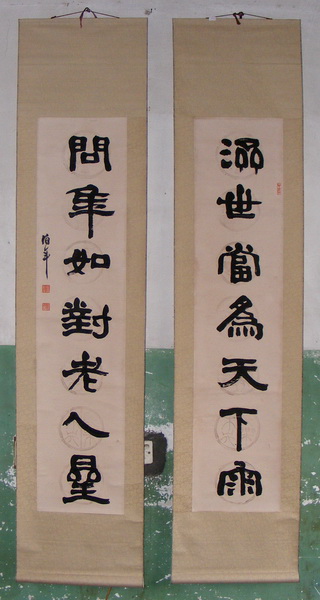 濟世當為天下雨
問年如對老人星